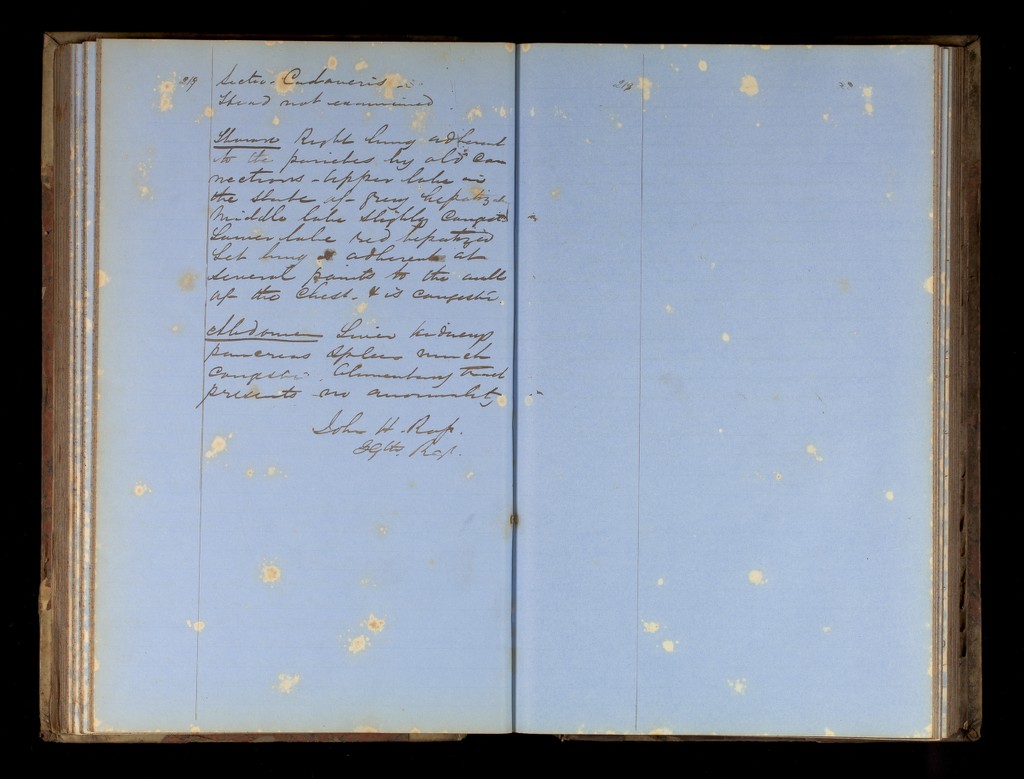 219 Sectio-Cadaveris
Head not examined
Thorax Right lung adherent
to the parietes by old con
nections - Upper lobe in
the state of grey hepatiz
Middle lobe slightly congest
Lower lobe red hepatized
Left lung adherent at
several points to the wall
of the chest - & is congested
Abdomen Liver kidneys
pancreas spleen much
congested. Alimentary tract
presents no abnormality
John H. Rap.
Rap.